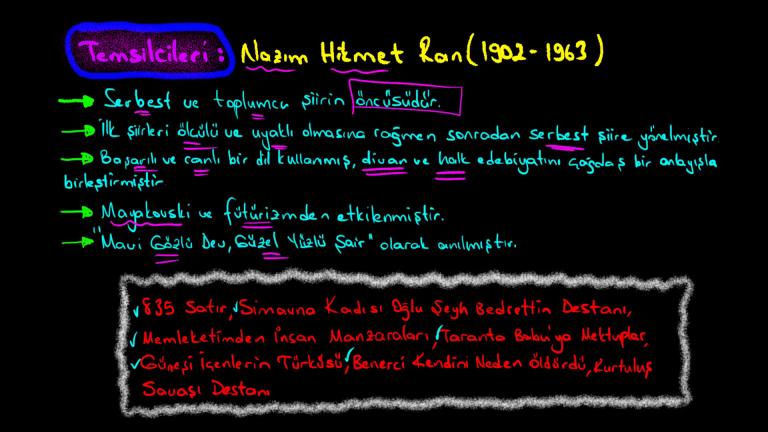 Temsilcileri: Nazım Hikmet Ran (1902-1963)
Serbest ve toplumcu şiirin öncüsüdür.
İlk şiirleri ölçülü ve uyaklı olmasına rağmen sonradan serbest şiire yönelmiştir
Başarılı ve canlı bir dil kullanmış, divan ve halk edebiyatını çağdaş bir anlayışla
birleştirmiştir
Mayakovski ve fütürizmden etkilenmiştir.
"Mavi Gözlü Dev, Güzel Yüzlü Şair" olarak anılmıştır.
835 Satır, Simavna Kadısı Oğlu Şeyh Bedrettin Destanı,
Memleketimden İnsan Manzaraları, Taranta Babu'ya Mektuplar,
Güneşi İçenlerin Türküsü, Benerci Kendini Neden Öldürdü, Kurtuluş
Savaşı Destanı